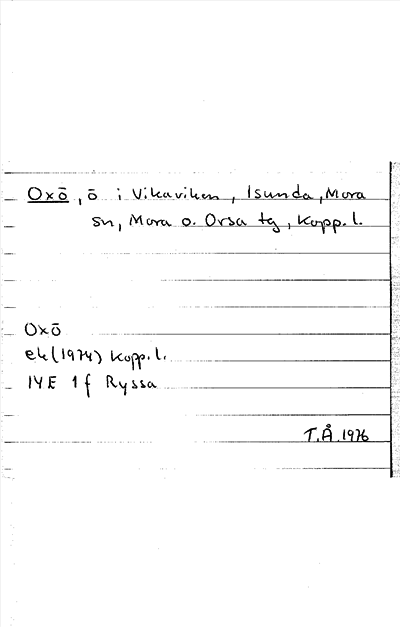 Oxö, ö i Vikaviken, Isunda, Mora
sn, Mora o. Orsa tg, Kopp. l.
Oxö
ek (1974) Kopp. l.
14E 1f Ryssa
T.Å. 1976